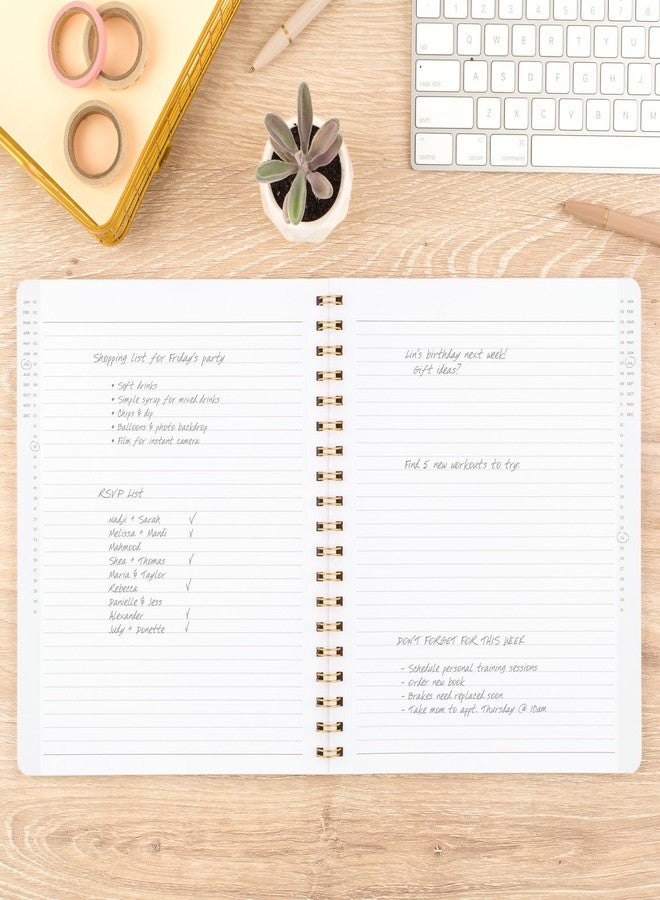 Q W E R T Y U
caps lock A S D F G H J K
shift Z X C V B N M
control option command
JAN
FEB
MAR
APR
MAY
JUN
JUL
AUG
SEP
OCT
NOV
DEC
Shopping list for Friday's party
• Soft drinks
• Simple syrup for mixed drinks
• Chips & dip
• Balloons & photo backdrop
• Film for instant camera
RSVP List
Nadji + Sarah ✓
Melissa + Mandi ✓
Mahmood
Shea + Thomas ✓
Maria & Taylor
Rebecca ✓
Danielle & Jess
Alexander ✓
Judy + Donette ✓
Lin's birthday next week!
Gift ideas?
Find 5 new workouts to try:
DON'T FORGET FOR THIS WEEK
- Schedule personal training sessions
- Order new book
- Brakes need replaced soon
- Take mom to appt. Thursday @ 10am
JAN
FEB
MAR
APR
MAY
JUN
JUL
AUG
SEP
OCT
NOV
DEC